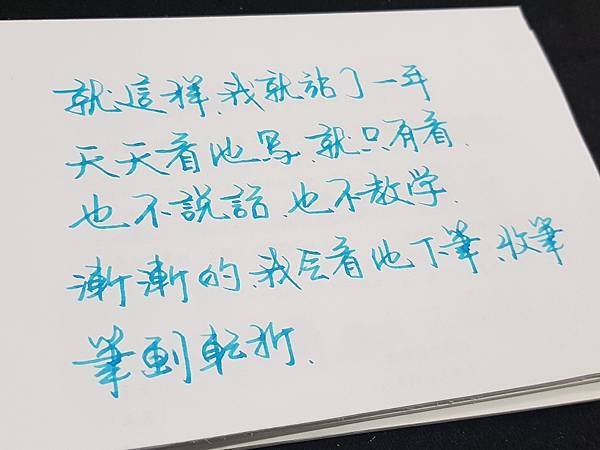 就這样、我就站了一年
天天看他写、就只有看、
也不說話、也不教学、
漸漸的、我会看他下筆、收筆
筆劃転折、